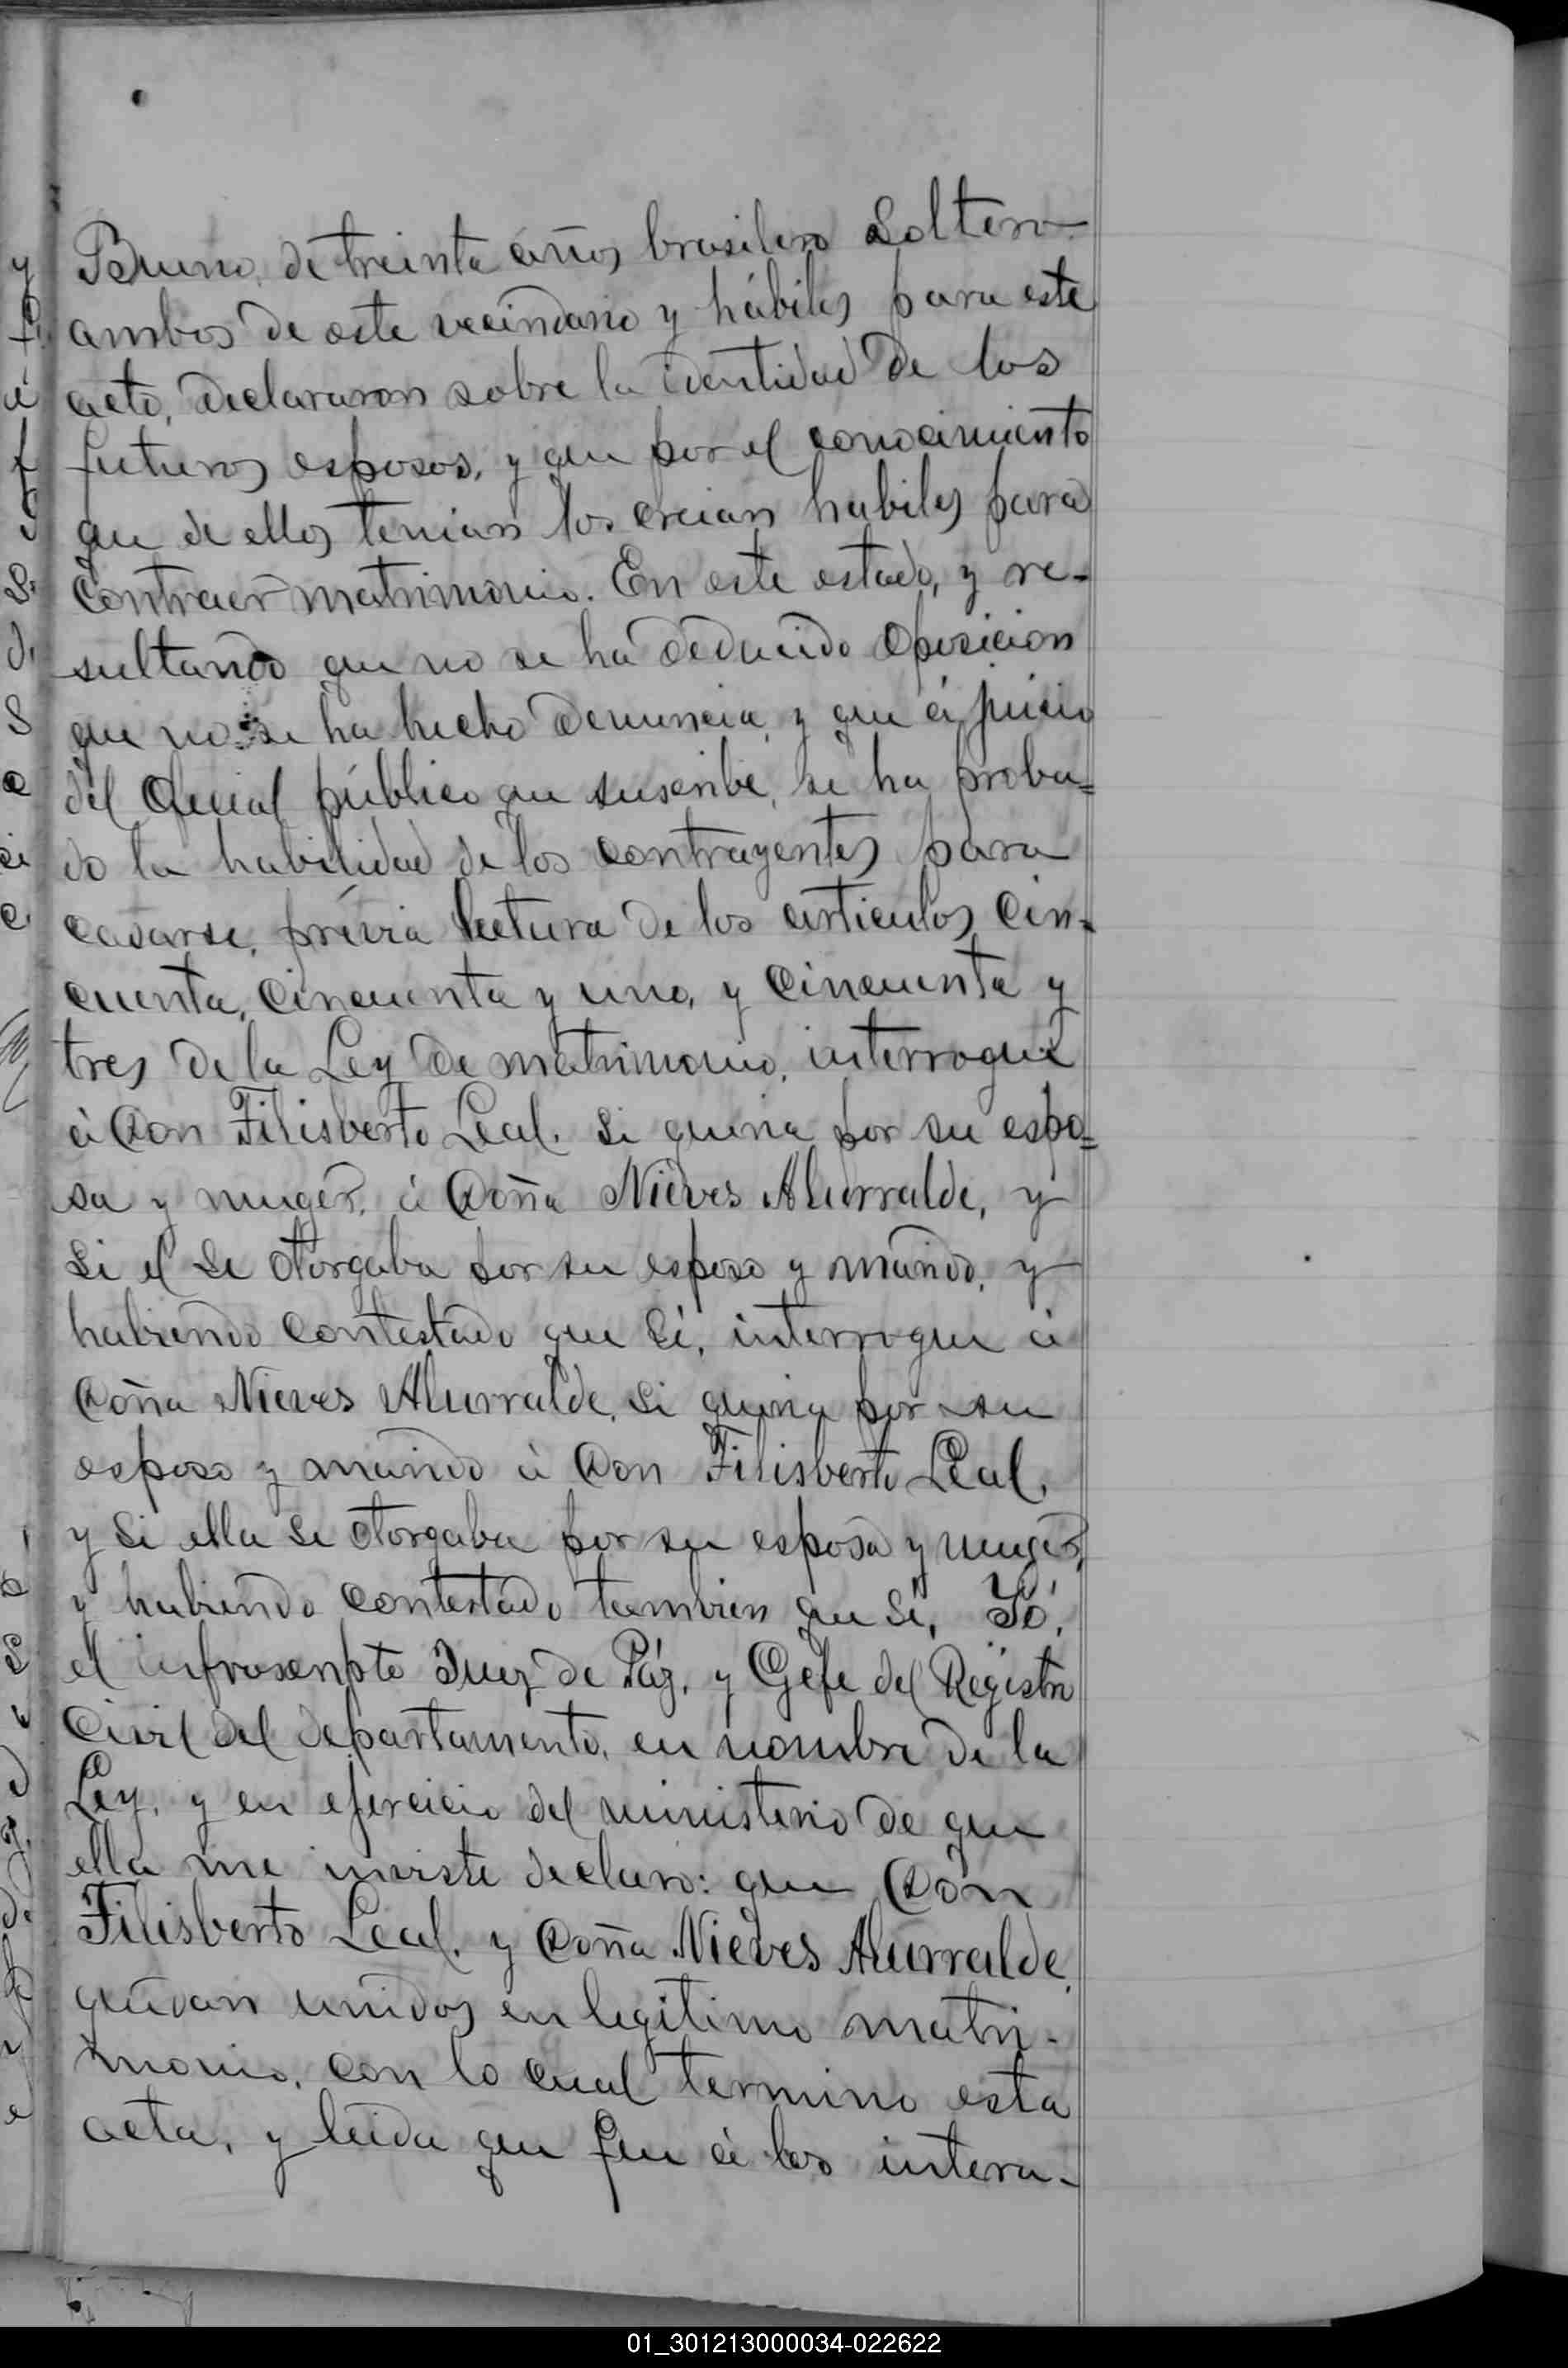 Bruno, de treinta años brasilero Soltero
ambos de este vecindario y hábiles para este
acto, declararon sobre la identidad de los
futuros esposos, y que por el conocimiento
que de ellos tenian los creian habiles para
contraer matrimonio. En este estado, y re-
sultando que no se ha deducido oposicion
que no se ha hecho denuncia, y que á juicio
del Oficial público que suscribe, se ha proba=
do la habilidad de los contrayentes para
casarse, prévia lectura de los articulos cin-
cuenta, cincuenta y uno, y cincuenta y
tres de la Ley de matrimonio, interrogué
á Don Filisberto Leal. Si queria por su espo=
sa y muger, á Doña Nieves Alurralde, y
Si el se otorgaba por su esposo y marido, y
habiendo contestado que Sí, interrogue á
Doña Nieves Alurralde, Si queria por su
esposo y marido á Don Filisberto Leal,
y Si ella se otorgaba por su esposa y muger,
y habiendo contestado tambien que Sí, Yó,
el infrascripto Juez de Páz, y Gefe del Registro
Civil del departamento, en nombre de la
Ley, y en ejercicio del ministerio de que
ella me inviste declaro: que Don
Filisberto Leal, y Doña Nieves Alurralde,
quedan unidos en legitimo matri-
monio, con lo cual termino esta
acta, y leida que fue á los intere-
01_301213000034-022622